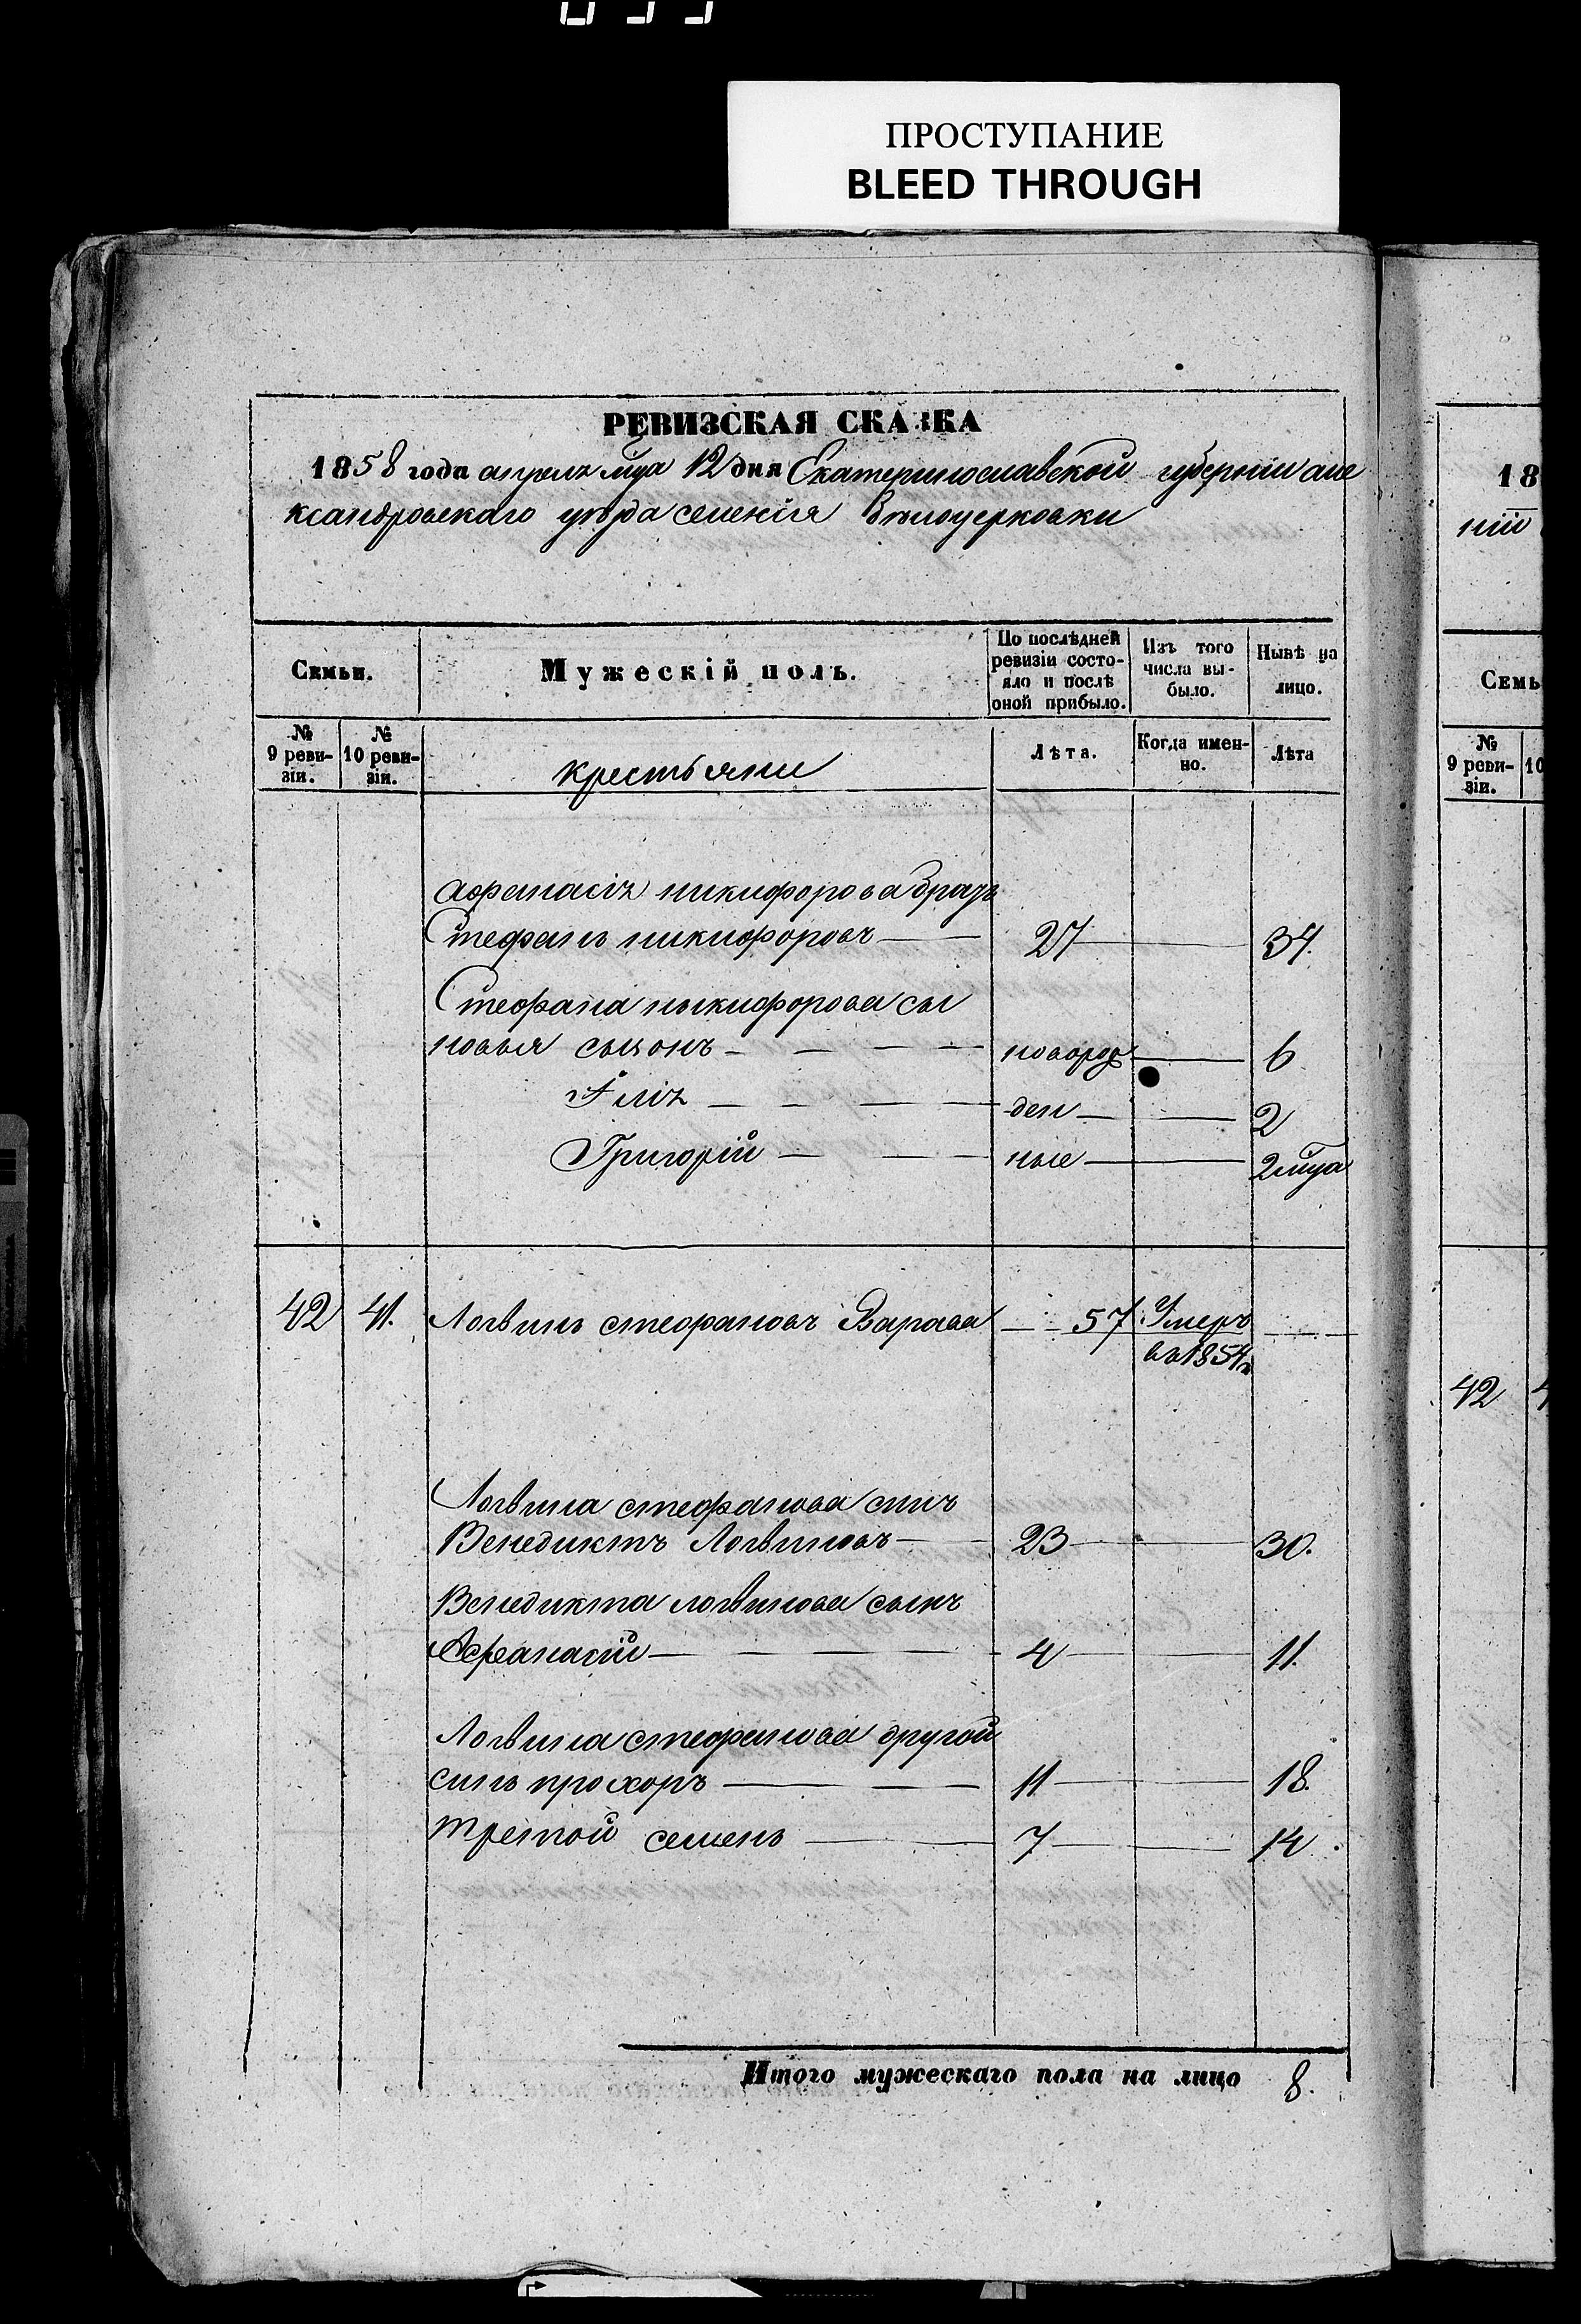 ПРОСТУПАНИЕ
BLEED THROUGH
РЕВИЗСКАЯ СКАЗКА
1858 года апреля мца 12 дня Екатеринославской губернии але
ксандровскаго уѣзда селенія Бѣлоцерковки
Семьи. Мужескій полъ. По послѣдней ревизіи состояло и послѣ оной прибыло. Изъ того числа вы-было. Нынѣ на лицо.
№ 9 реви-зіи. № 10 реви-зіи. крестьяни Лѣта. Когда имен-но. Лѣта
афанасія никифорова братъ
Стефанъ никифоровъ 27 34.
Стефана никифорова сы
новья симонъ новорож 6
Илія ден 2
Григорій ные 2 мца
42 41. Логвинъ стефановъ Варава 57 Умеръ
въ 1854г
Логвина стефанова синъ
Венедиктъ Логвиновъ 23 30.
Венедикта логвинова сынъ
Афанасій 4 11.
Логвина стефанова другой
синъ прохоръ 11 18.
третой семенъ 7 14.
Итого мужескаго пола на лицо 8.
18
ніи
Семь
№ 9 реви-зіи. 10
42 4